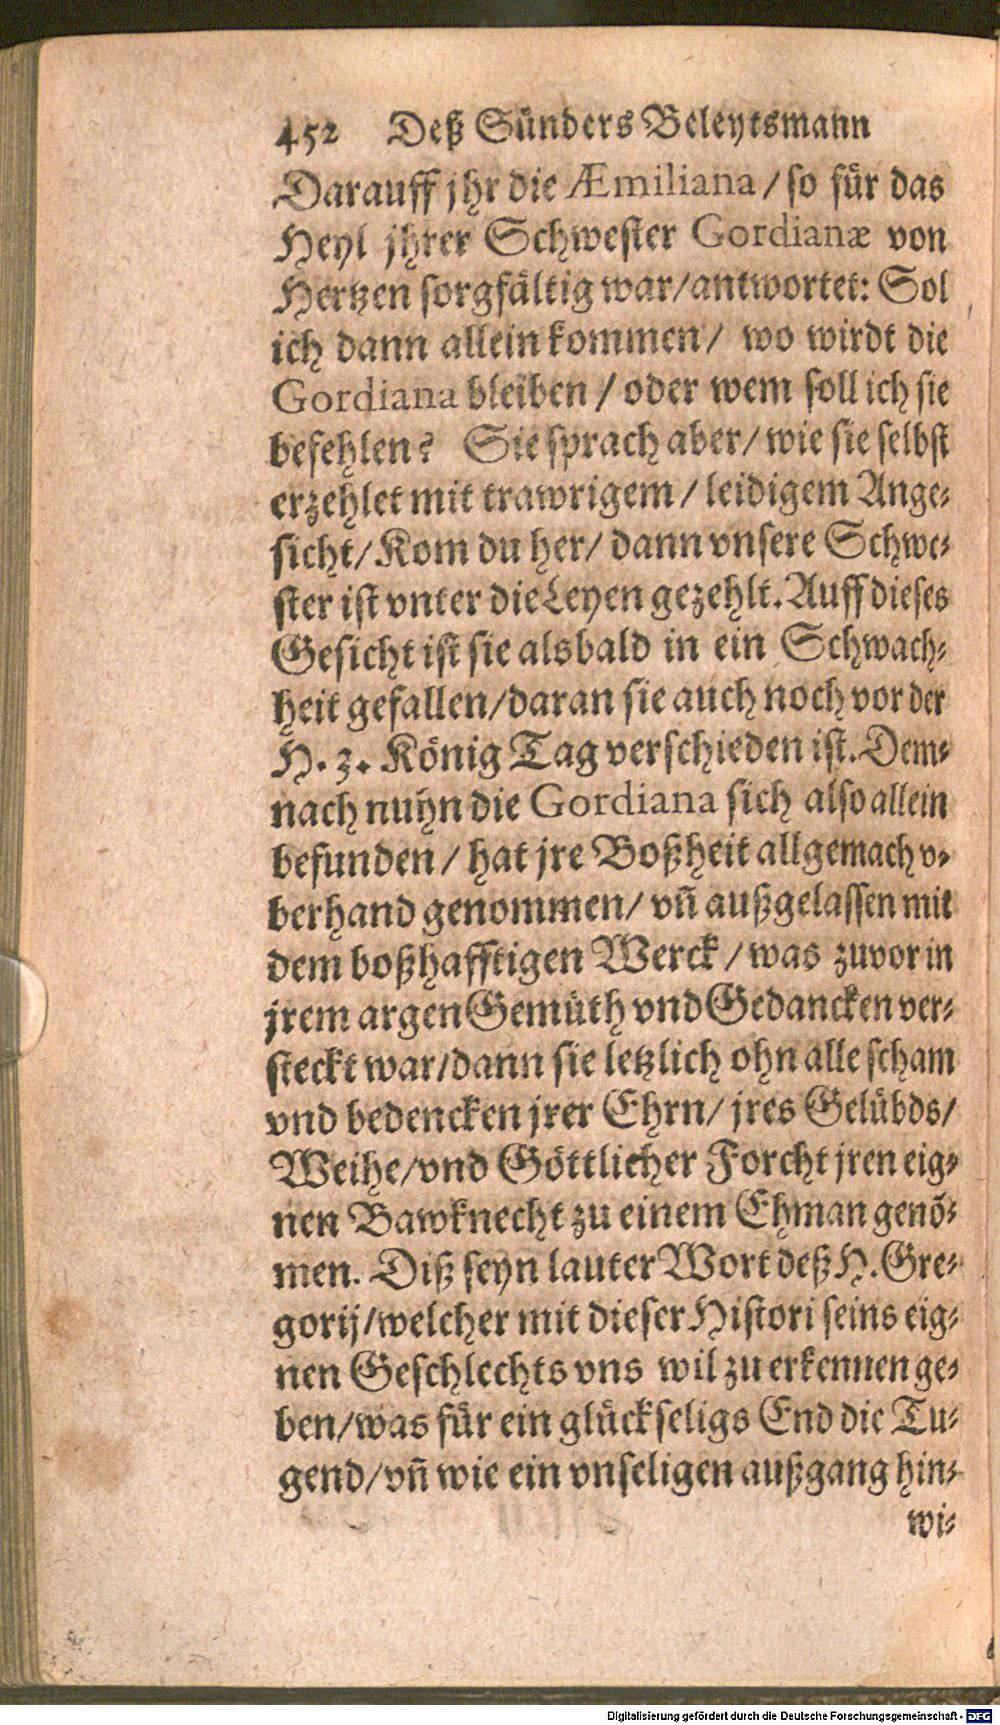 452 Deß Sünders Beleytsmann
Darauff jhr die Æmiliana / so für das
Heyl jhrer Schwester Gordianæ von
Hertzen sorgfältig war/antwortet: Sol
ich dann allein kommen/ wo wirdt die
Gordiana bleiben / oder wem soll ich sie
befehlen? Sie sprach aber/ wie sie selbst
erzehlet mit trawrigem / leidigem Ange-
sicht/ Kom du her/ dann vnsere Schwe-
ster ist vnter die Leyen gezehlt. Auff dieses
Gesicht ist sie alsbald in ein Schwach-
heit gefallen/daran sie auch noch vor der
H. 3. König Tag verschieden ist. Dem-
nach nuhn die Gordiana sich also allein
befunden / hat jre Boßheit allgemach v-
berhand genommen/ vñ außgelassen mit
dem boßhafftigen Werck / was zuvor in
jrem argen Gemüth vnd Gedancken ver-
steckt war/dann sie letzlich ohn alle scham
vnd bedencken jrer Ehrn/ jres Gelübds/
Weihe/vnd Göttlicher Forcht jren eig-
nen Bawknecht zu einem Ehman genõ-
men. Diß seyn lauter Wort deß H. Gre-
gorij/welcher mit dieser Histori seins eig-
nen Geschlechts vns wil zu erkennen ge-
ben/was für ein glückseligs End die Tu-
gend/vñ wie ein vnseligen außgang hin-
wi-
Digitalisierung gefördert durch die Deutsche Forschungsgemeinschaft - DFG